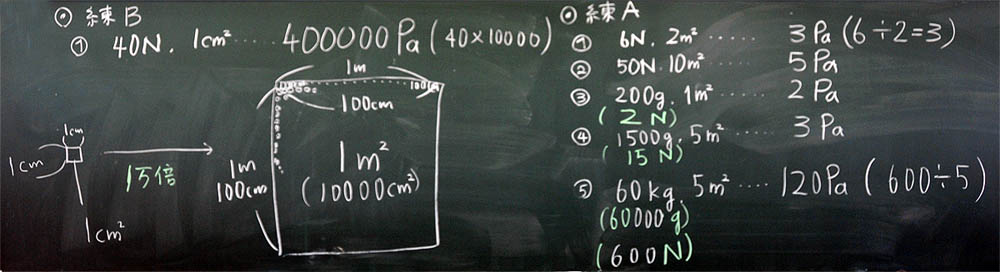 ◎ 練B
① 40N. 1cm² ····· 400000Pa (40×10000)
1m
100
100cm
1cm
1cm
1cm²
1万倍
1m
100cm
1m²
(10000cm²)
◎ 練A
① 6N. 2m² ······ 3Pa (6÷2=3)
② 50N. 10m² ····· 5Pa
③ 200g. 1m² ····· 2Pa
(2N)
④ 1500g. 5m² ····· 3Pa
(15N)
⑤ 60kg. 5m² ···· 120Pa (600÷5)
(60000g)
(600N)